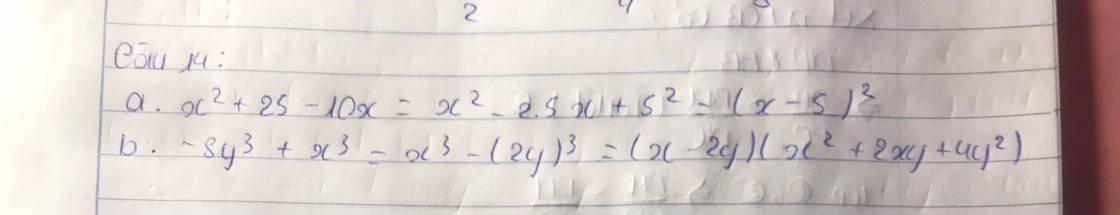 Câu 14:
a. x² + 25 - 10x = x² - 2.5x + 5² = (x - 5)²
b. -8y³ + x³ = x³ - (2y)³ = (x - 2y)(x² + 2xy + 4y²)